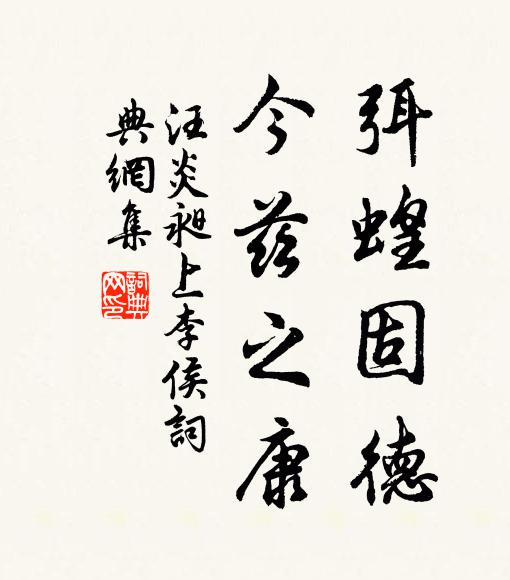 弭蝗固德
今茲之康
汪炎昶上李侯詞
典網集
詞典網印